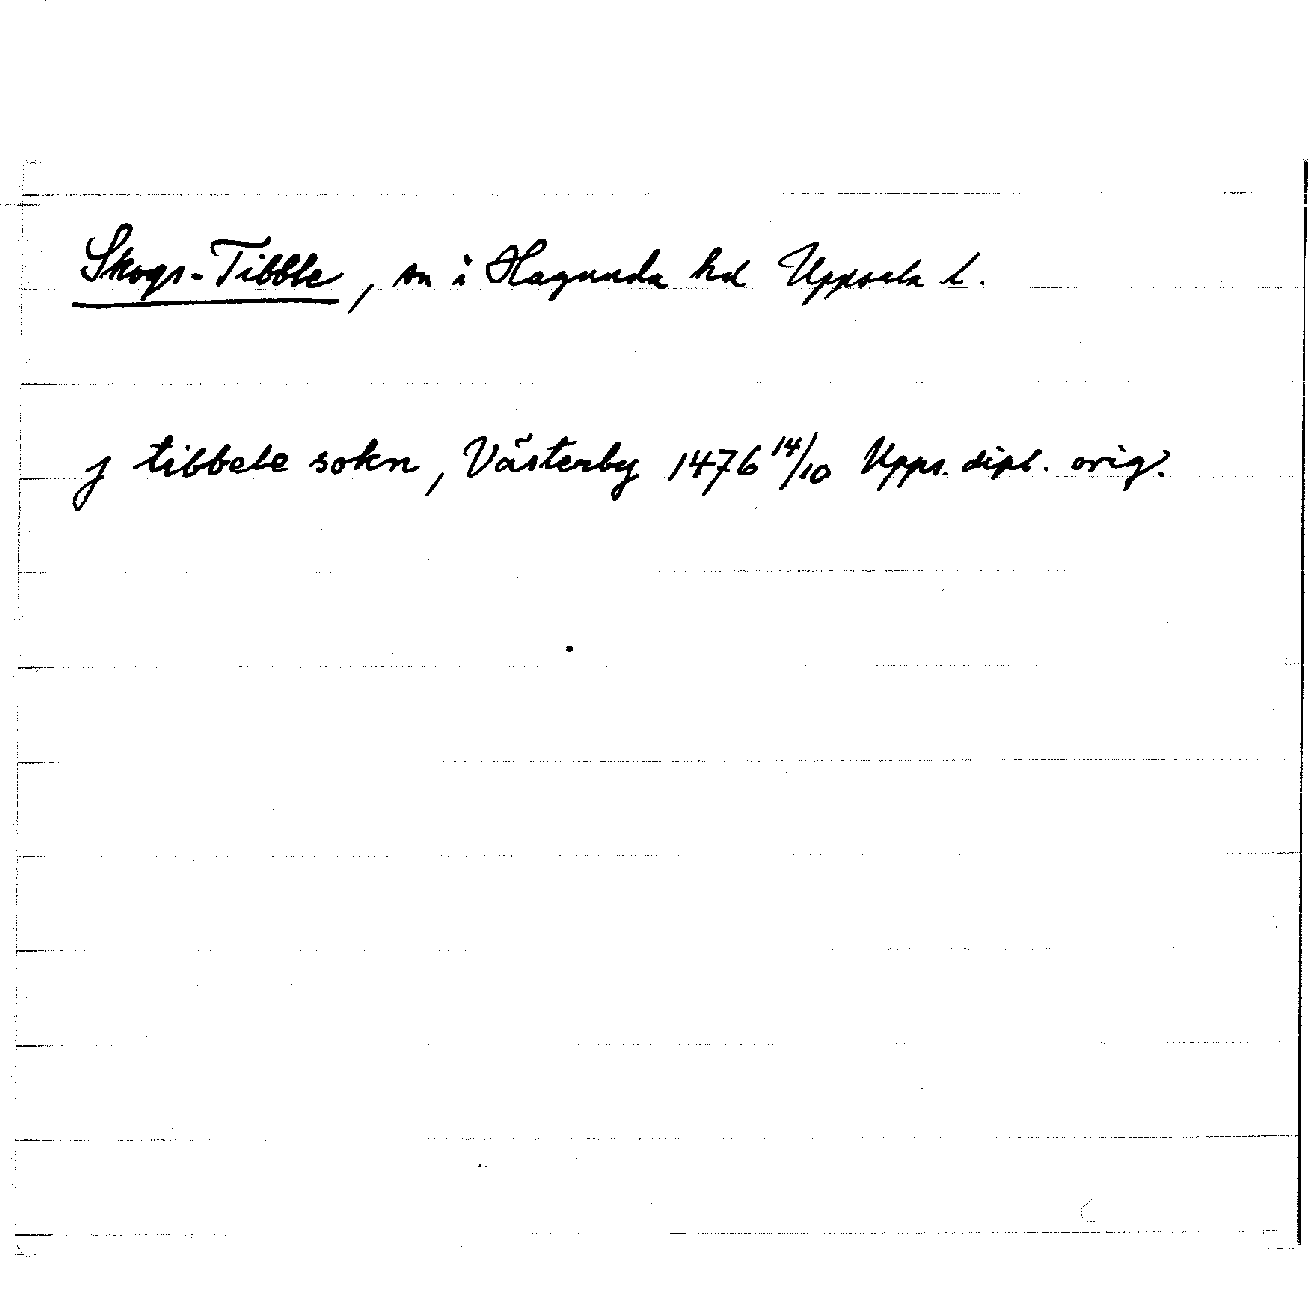 Skogs-Tibble, sn i Hagunda hd Uppsala l.
j tibbele sokn, Västerby 1476 14/10 Upps. dipl. orig.